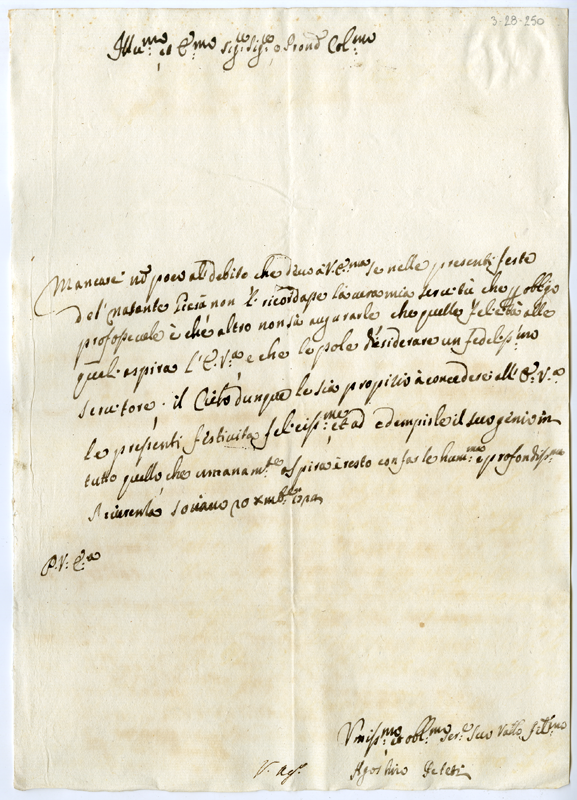 3-28-250
Illu:mo et E:mo Sig:re Sig:re e Prone Col:mo
Mancarei no poco al debito che devo à V: E:ma se nelle presenti feste
del nasente non li ricordasse la vera mia servitù che obligo
professole è che altro non sà augurarle che quelle felicità alle
quali aspira l'E: V:ra e che le pole desiderare un fedelis:mo
servitore. il Cielo dunque le sia propitio à concedere all' E: V:ra
le presenti festività felicisi:me et ad adempirle il suo genio in
tutto quello che umanam:te aspira e resto con farle hum:ma e profondiss:ma
Riverenza Soriano 20 Xmb:re
D. V: E:za
Umiliss:mo et obl:mo Ser:re Suo
Agostino